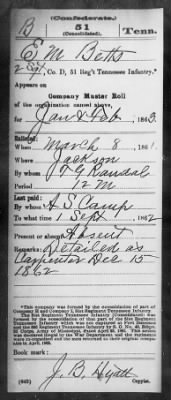 (Confederate.)
B 51 Tenn.
(Consolidated).
E M Betts
2 Sgt, Co. D, 51 Reg't Tennessee Infantry.*
Appears on
Company Muster Roll
of the organization named above,
for Jan & Feb, 1863.
Enlisted:
When March 8, 1861.
Where Jackson
By whom J G Randal
Period 12 M
Last paid:
By whom A S Camp
To what time 1 Sept, 1862
Present or absent Absent
Remarks: Detailed as
Carpenter Dec 15
1862
*This company was formed by the consolidation of part of
Company H and Company I, 51st Regiment Tennessee Infantry.
Book mark:
J. B. Hyatt
(642) Copyist.